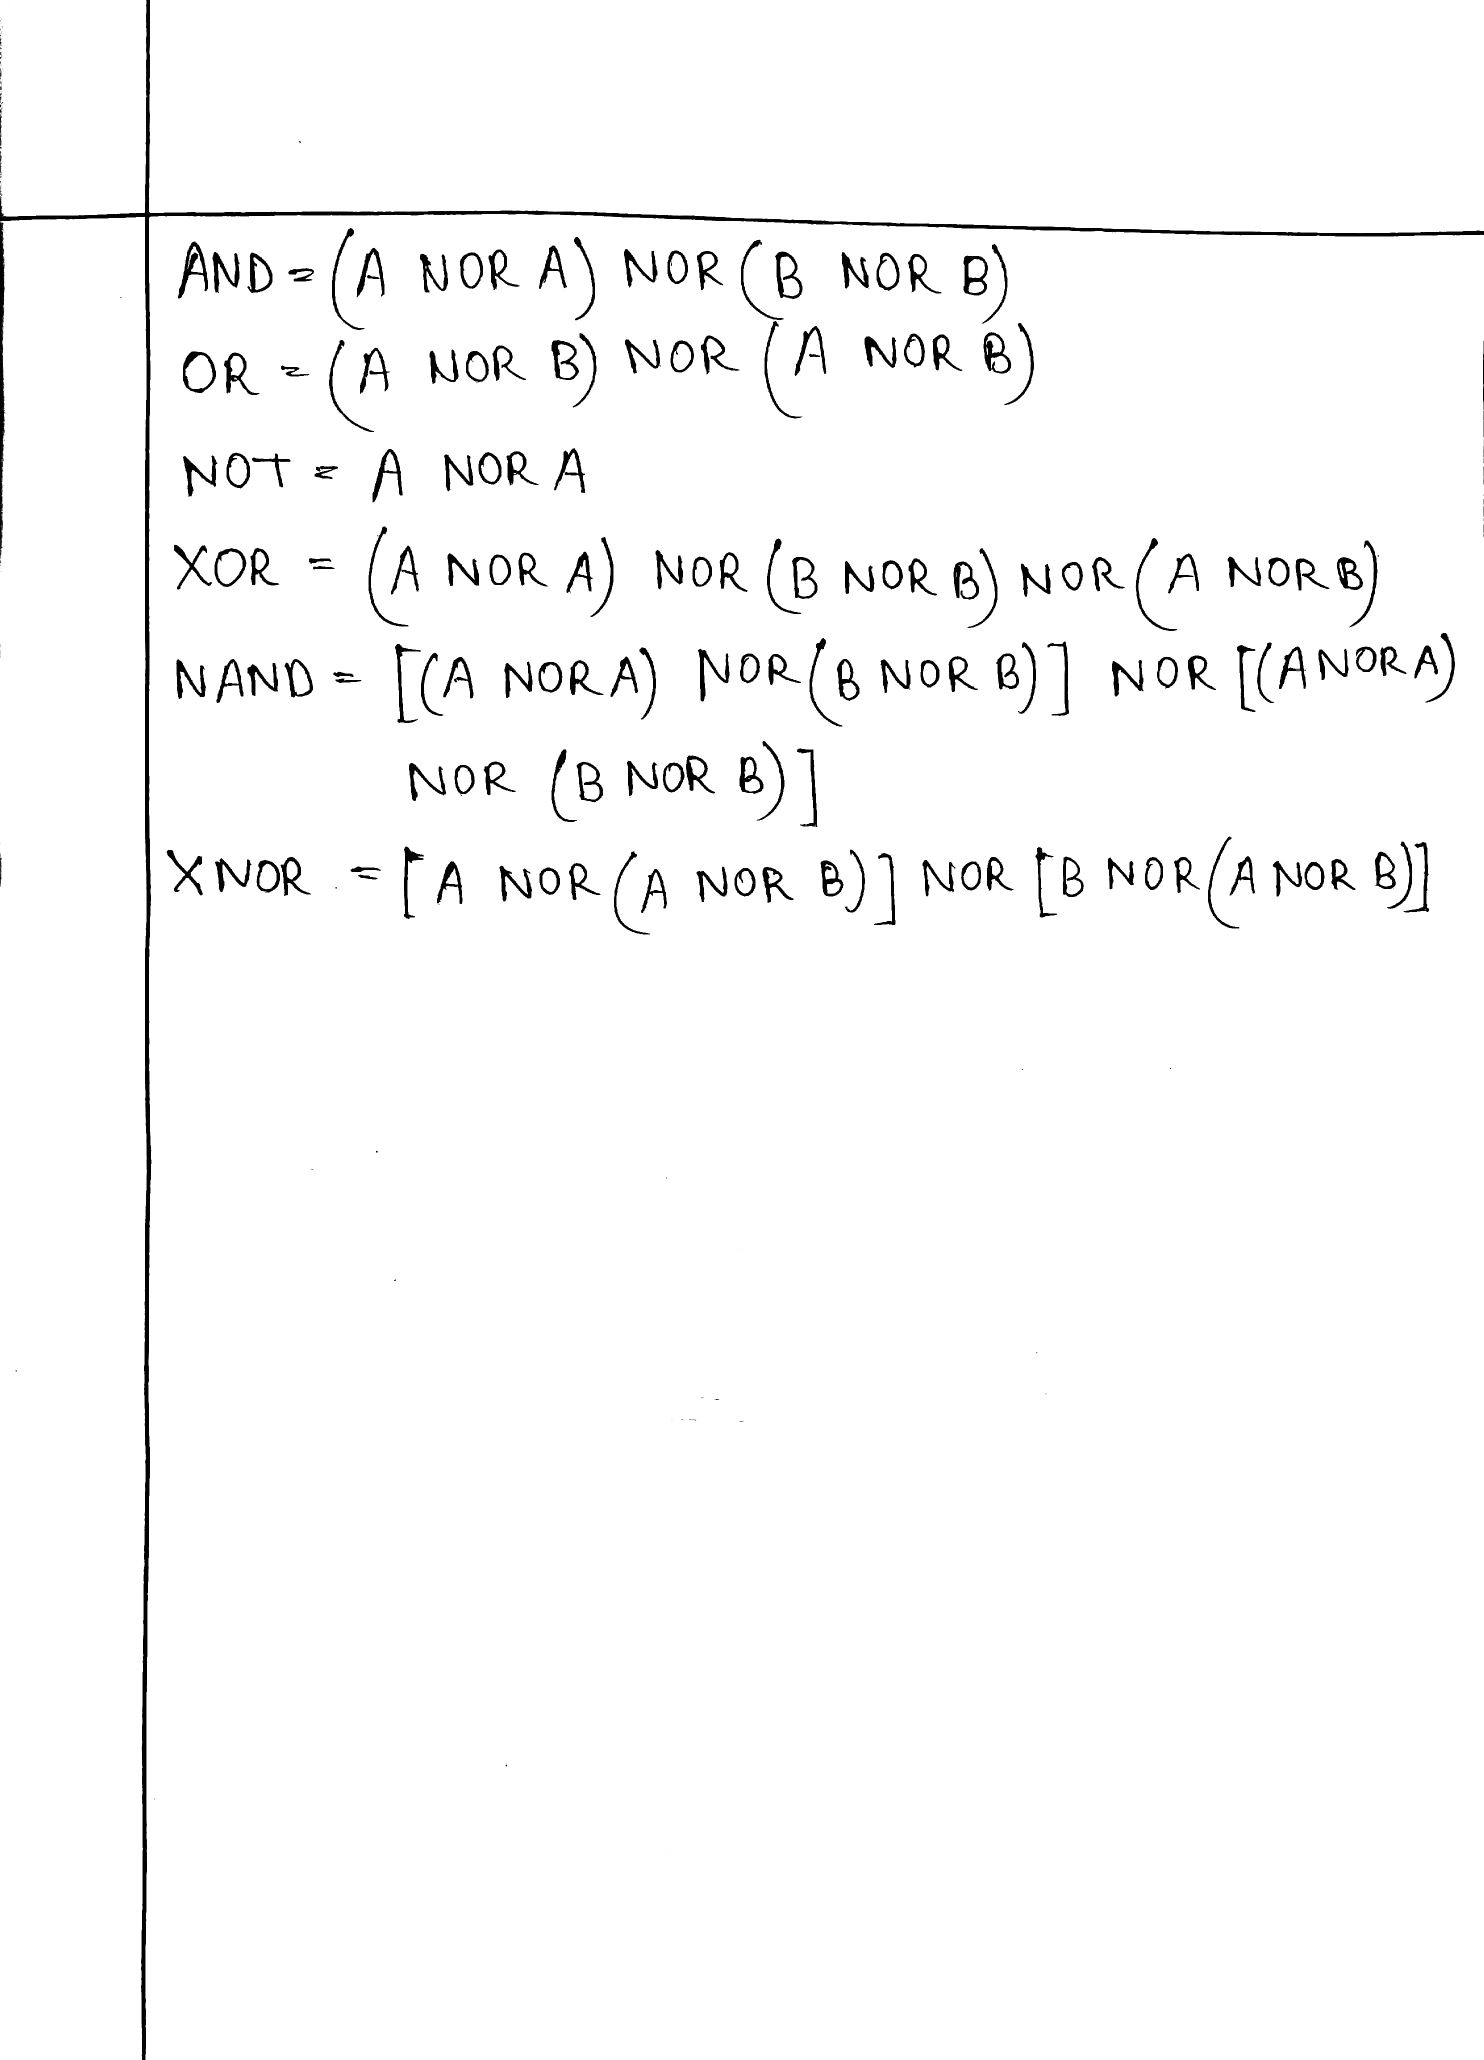 AND = (A NOR A) NOR (B NOR B)
OR = (A NOR B) NOR (A NOR B)
NOT = A NOR A
XOR = (A NOR A) NOR (B NOR B) NOR (A NOR B)
NAND = [(A NOR A) NOR (B NOR B)] NOR [(A NOR A)
NOR (B NOR B)]
XNOR = [A NOR (A NOR B)] NOR [B NOR (A NOR B)]